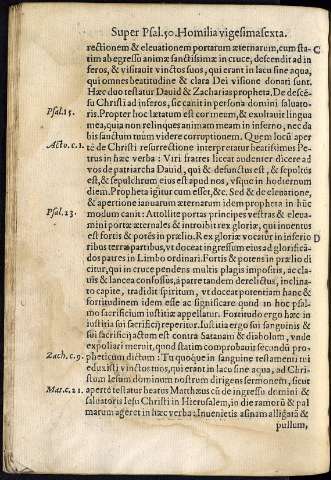 Super Psal. 50. Homilia vigesimasexta.
rectionem & eleuationem portarum æternarum, cum sta-
tim ab egressu animæ sanctissimæ in cruce, descendit ad in
feros, & visitauit vinctos suos, qui erant in lacu sine aqua,
qui omnes beatitudine & clara Dei visione donati sunt.
Hæc duo testatur Dauid & Zacharias propheta. De descē-
su Christi ad inferos, sic canit in persona domini saluato-
Psal. 15.
ris. Propter hoc lætatum est cor meum, & exultauit lingua
mea, quia non relinques animam meam in inferno, nec da
bis sanctum tuum videre corruptionem. Quem locū aper
Acto. c. 2.
te de Christi resurrectione interpretatur beatissimus Pe-
trus in hæc verba: Viri fratres liceat audenter dicere ad
vos de patriarcha Dauid, qui & defunctus est, & sepultus
est, & sepulchrum eius est apud nos, vsque in hodiernum
diem. Propheta igitur cum esset, &c. Sed & de eleuatione,
& apertione ianuarum æternarum idem propheta in hūc
Psal. 23.
modum canit: Attollite portas principes vestras & eleua-
mini portæ æternales & introibit rex gloriæ, qui inuentus
est fortis & potēs in prælio. Rex gloriæ vocatur in inferio
D
ribus terræ partibus, vt doceat ingressum eius ad glorificā-
dos patres in Limbo ordinari. Fortis & potens in prælio di
citur, qui in cruce pendens multis plagis impositis, ac cla-
uis & lancea confossus, à patre tandem derelictus, inclina-
to capite, tradidit spiritum, vt doceat potentiam hanc &
fortitudinem idem esse ac significare quod in hoc psal-
mo sacrificium iustitiæ appellatur. Fortitudo ergo hæc in
iustitia sui sacrificij reperitur. Iustitia ergo sui sanguinis &
sui sacrificij actum est contra Satanam & diabolum, vnde
expoliari meruit, quod statim comprobauit secundū pro-
Zach. c. 9.
pheticum dictum: Tu quoque in sanguine testamenti tui
eduxisti vinctos tuos, qui erant in lacu sine aqua, ad Chri-
stum Iesum dominum nostrum dirigens sermonem, sicut
Mat. c. 21.
apertè testatur beatus Matthæus cū de ingressu domini &
saluatoris Iesu Christi in Hierusalem, in die ramorū & pal
marum ageret in hæc verba: Inuenietis asinam alligatā &
pullum,